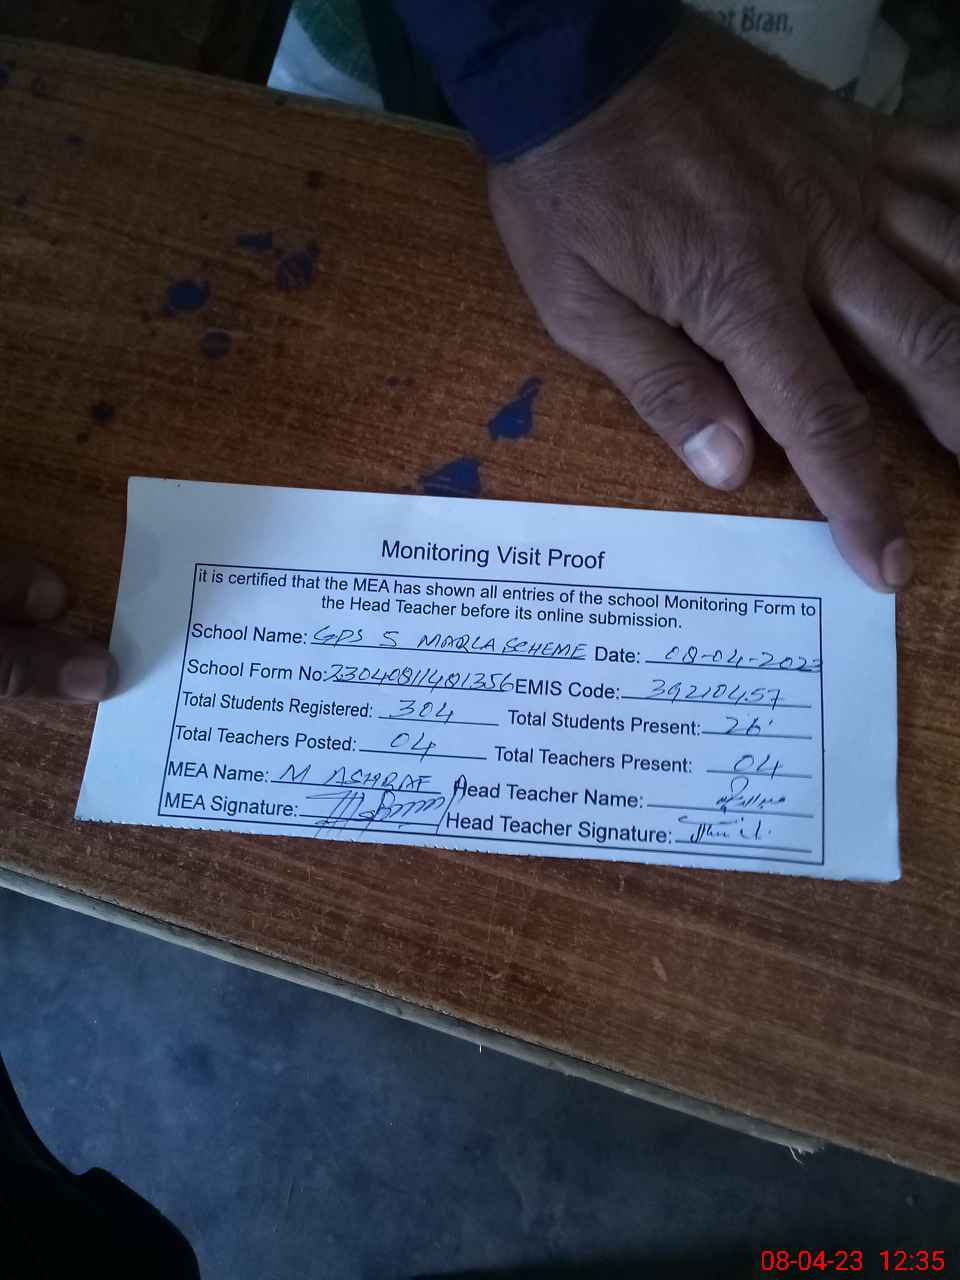 Bran,
Monitoring Visit Proof
it is certified that the MEA has shown all entries of the school Monitoring Form to
the Head Teacher before its online submission.
School Name: GPS 5 MARLA SCHEME Date: 08-04-2023
School Form No: 23040811481356 EMIS Code: 39210457
Total Students Registered: 304 Total Students Present: 26
Total Teachers Posted: 04 Total Teachers Present: 04
MEA Name: M ASHRAF Head Teacher Name:
MEA Signature: Head Teacher Signature:
08-04-23 12:35